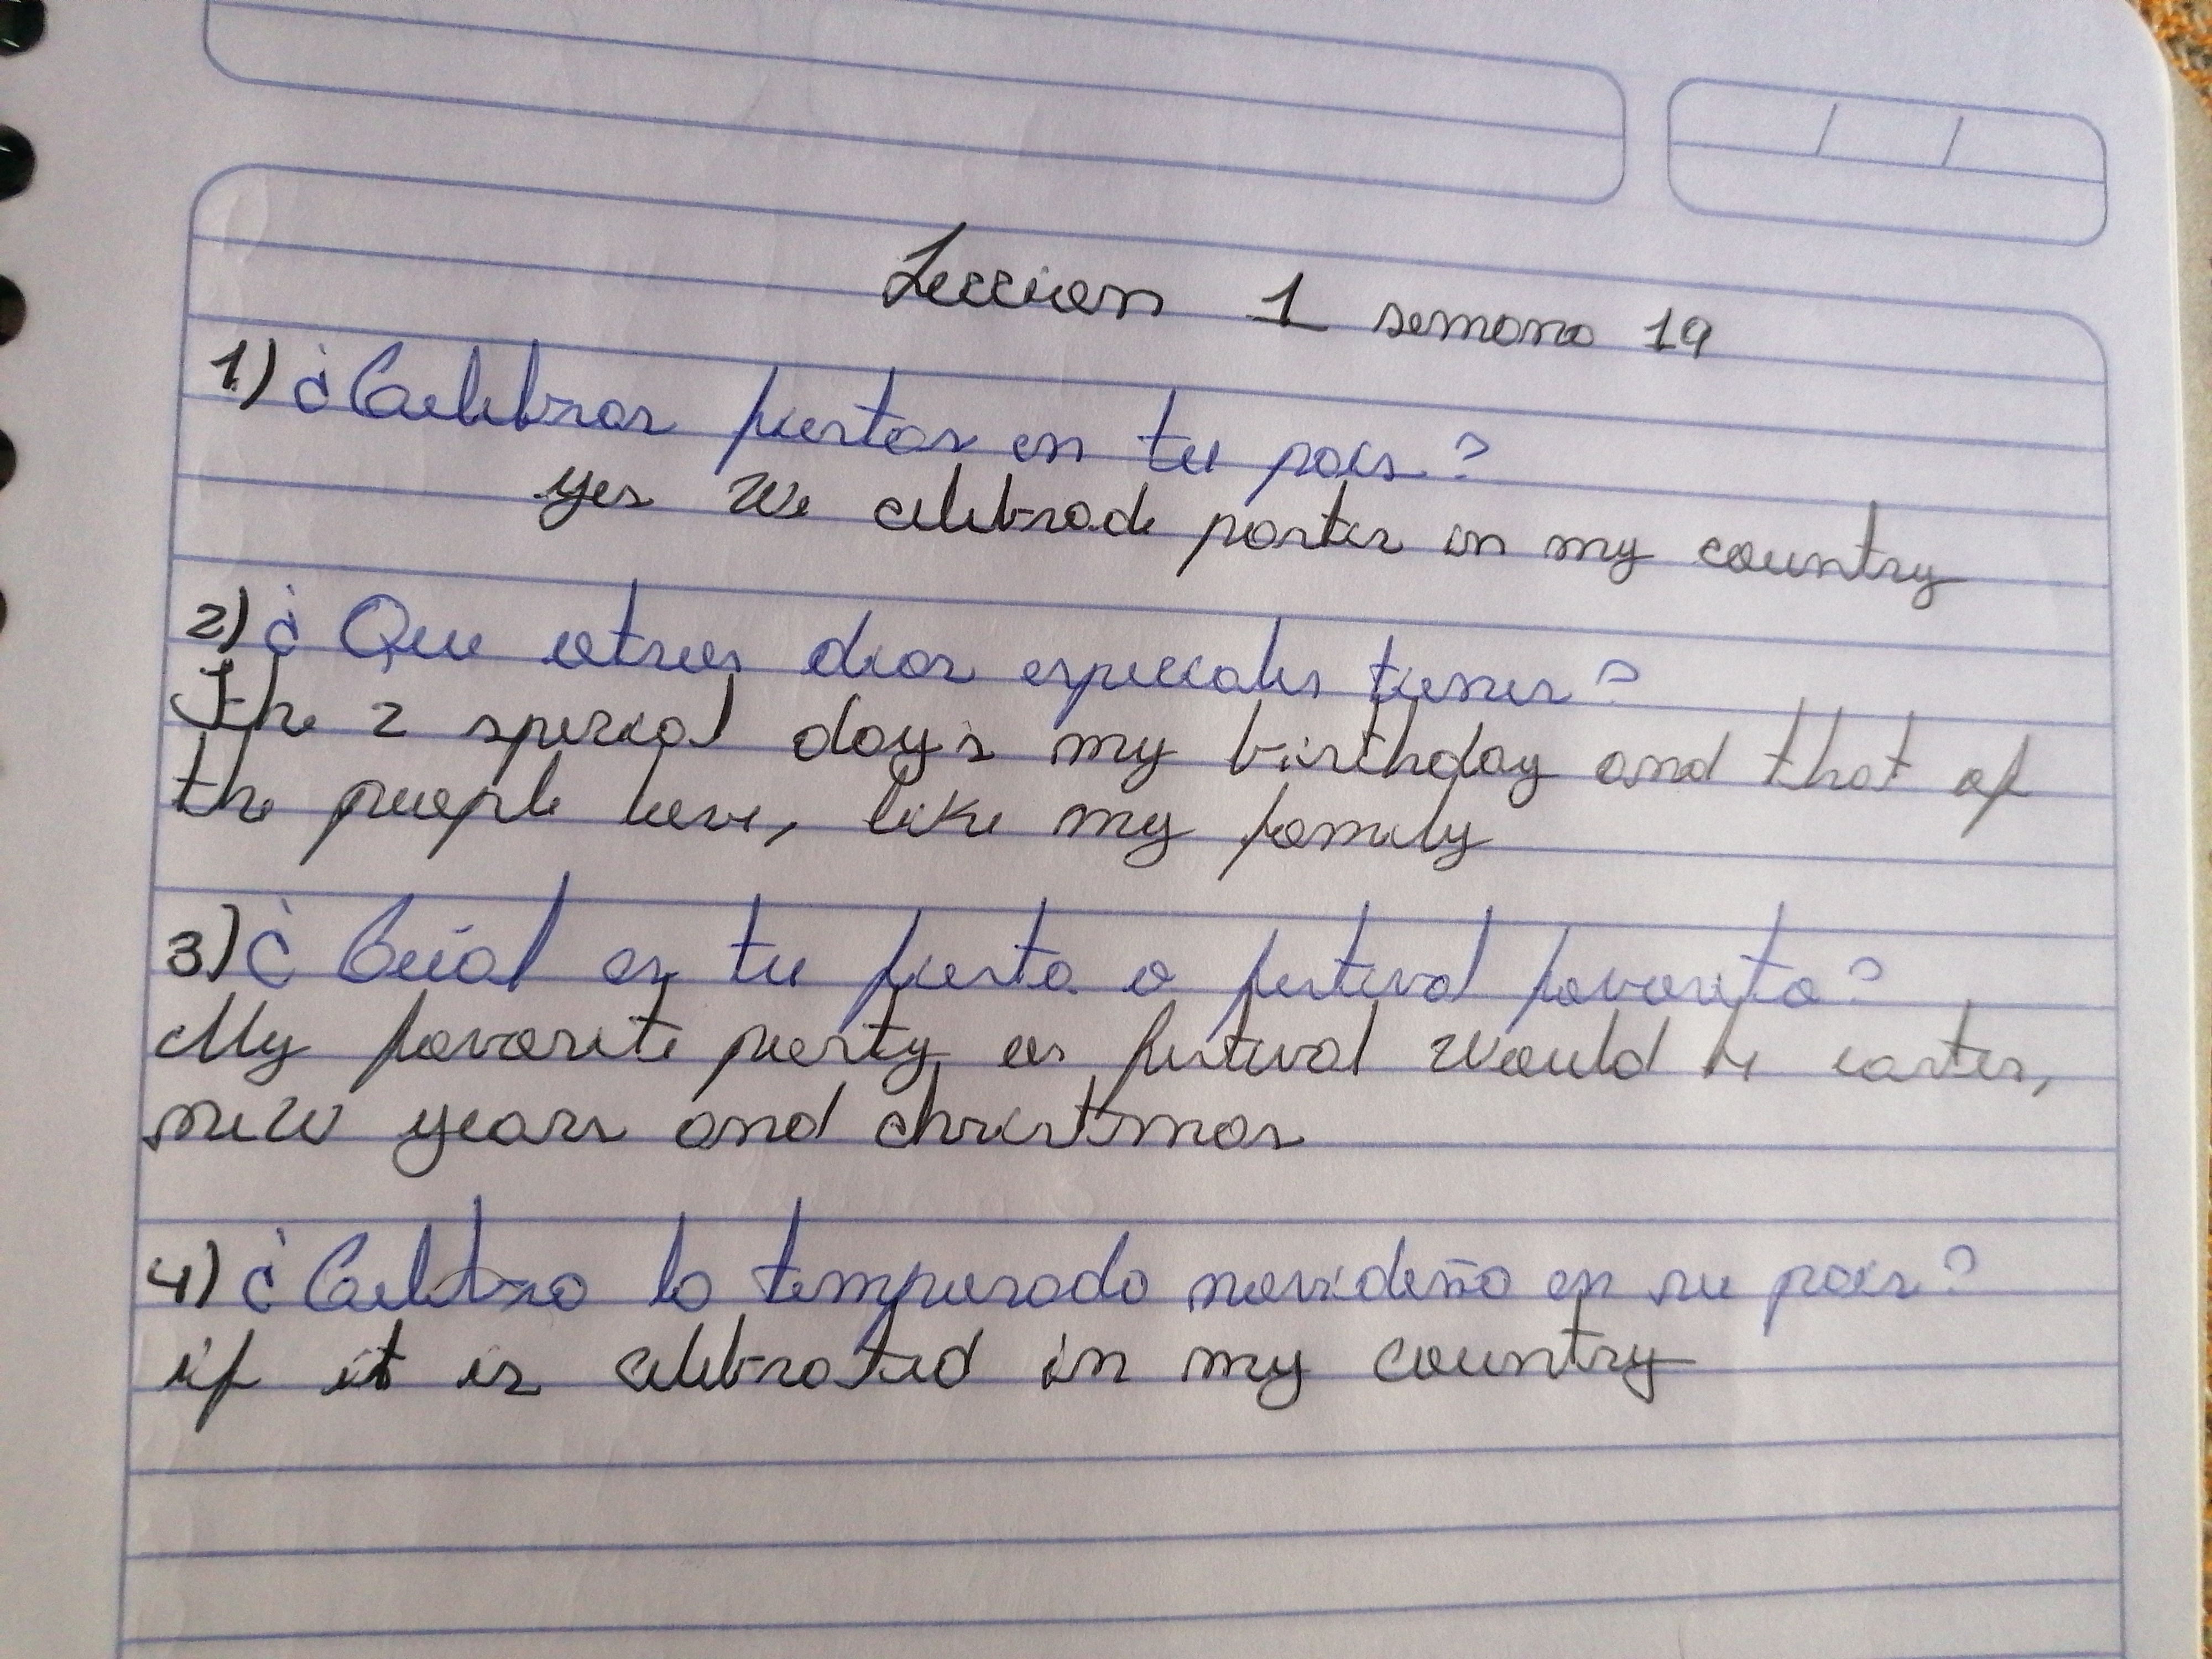 Leccion 1 semana 19
1) ¿Celebras fiestas en tu pais?
yes we celebrade parties in my country
2) ¿Que otros dias especiales tienes?
The 2 special day's my birthday and that of
the people love, like my family
3) ¿Cuál es tu fiesta o festival favorito?
My favorite party or festival would be easter,
new years and christmas
4) ¿Celebra la temporada navideña en su pais?
if it is celebrated in my country